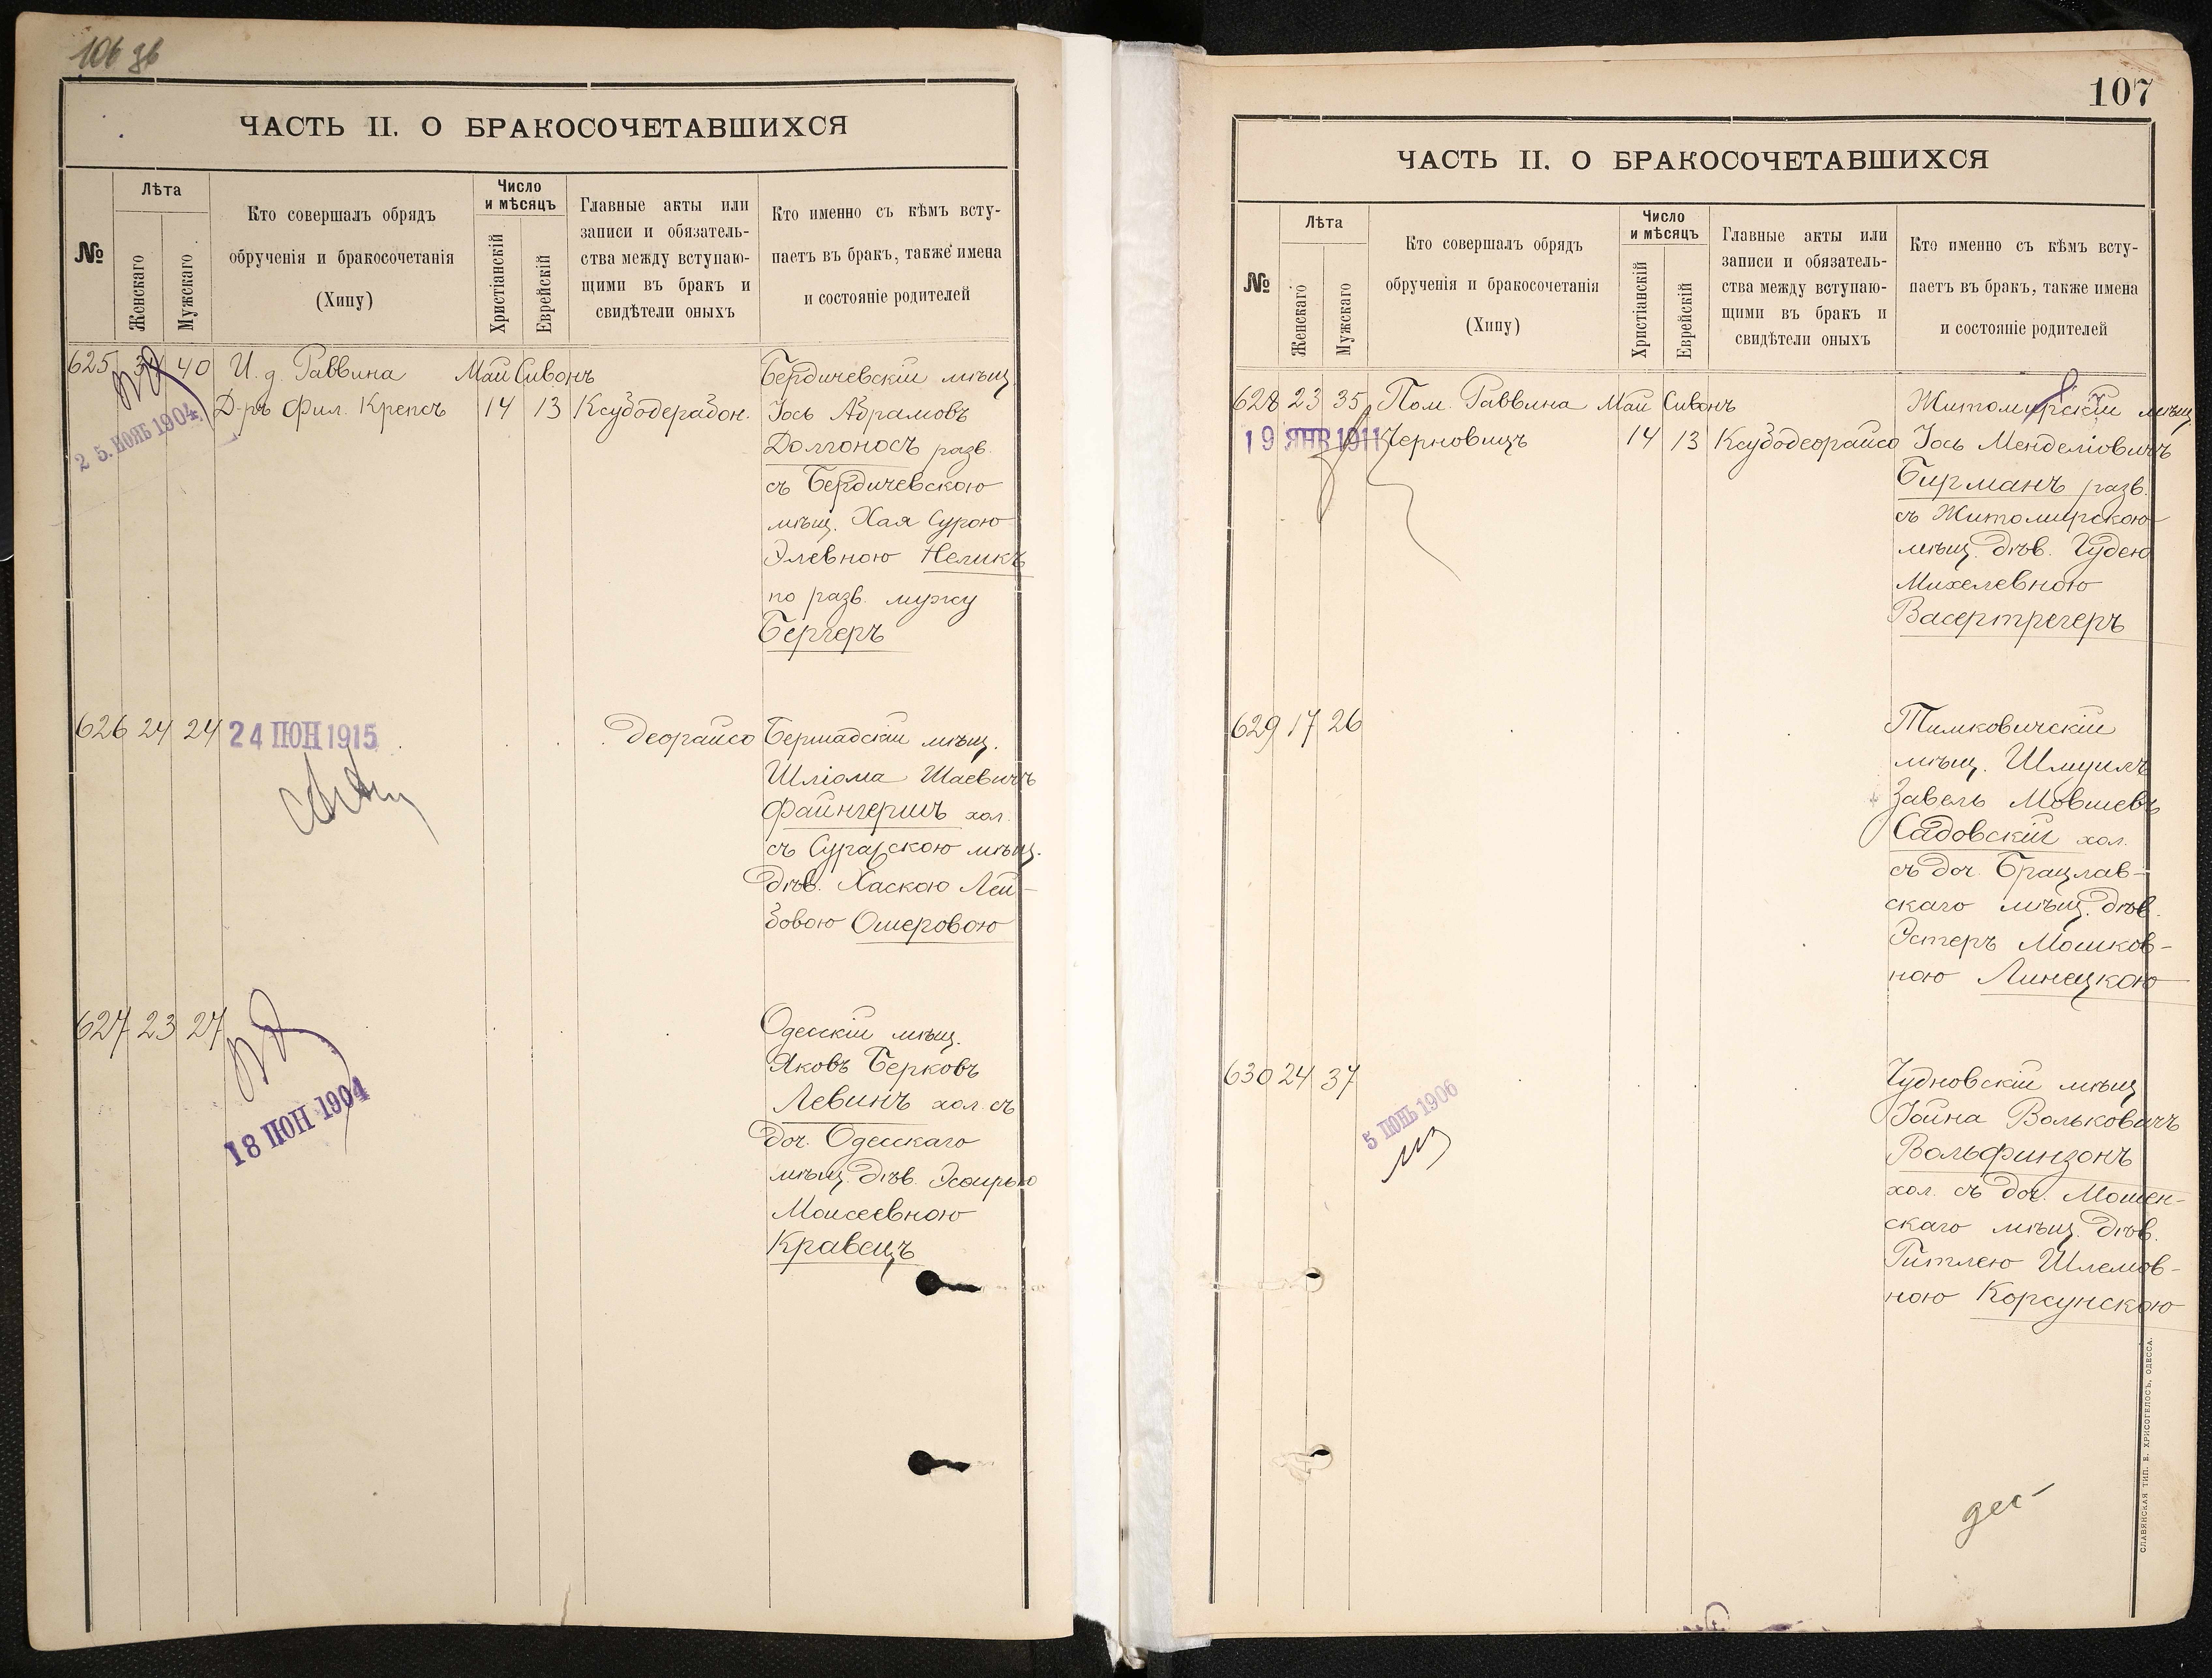 106 об
ЧАСТЬ II. О БРАКОСОЧЕТАВШИХСЯ
№
Лѣта
Женскаго
Мужскаго
Кто совершалъ обрядъ
обрученія и бракосочетанія
(Хипу)
Число
и мѣсяцъ
Христіанскій
Еврейскій
Главные акты или
записи и обязатель-
ства между вступаю-
щими въ бракъ и
свидѣтели оныхъ
Кто именно съ кѣмъ всту-
паетъ въ бракъ, также имена
и состояніе родителей
625 40 И. д. Раввина Май Сивонъ
Д-ръ Фил. Крепсъ 14 13 Ксубодерабон.
25. НОЯБ 1904
Бердичевскій мѣщ.
Іось Абрамовъ
Долгоносъ разв.
съ Бердичевскою
мѣщ. Хая Сурою
Элевною Неликъ
по разв. мужу
Бергеръ
626 24 24
24 ІЮН 1915
деорайсо
Бершадскій мѣщ.
Шліома Шаевичъ
Файнгершъ хол.
съ мѣщ.
дѣв. Хаскою Лей-
бовою Ошеровою
627 23 27
18 ІЮН 1904
Одесскій мѣщ.
Яковъ Берковъ
Левинъ хол. съ
доч. Одесскаго
мѣщ. дѣв. Эсѳирью
Моисеевною
Кравецъ
107
ЧАСТЬ II. О БРАКОСОЧЕТАВШИХСЯ
№
Лѣта
Женскаго
Мужскаго
Кто совершалъ обрядъ
обрученія и бракосочетанія
(Хипу)
Число
и мѣсяцъ
Христіанскій
Еврейскій
Главные акты или
записи и обязатель-
ства между вступаю-
щими въ бракъ и
свидѣтели оныхъ
Кто именно съ кѣмъ всту-
паетъ въ бракъ, также имена
и состояніе родителей
628 23 35 Пом. Раввина Май Сивонъ
Черновицъ 14 13 Ксубодеорайсо
19 ЯНВ 1911
Житомирскій мѣщ.
Іось Менделіовичъ
Бирманъ разв.
съ Житомирскою
мѣщ. дѣв. Гудею
Михелевною
Васертрегеръ
629 17 26
Тимковичскій
мѣщ. Шмуилъ
Завель Мовшевъ
Садовскій хол.
съ доч. Брацлав-
скаго мѣщ. дѣв.
Эстеръ Мошков-
ною Линецкою
630 24 37
5 ІЮНЬ 1906
Чудновскій мѣщ.
Іойна Вольковичъ
Вольфинзонъ
хол. съ доч. Мошен-
скаго мѣщ. дѣв.
Гитлею Шлемов-
ною Корсунскою
СЛАВЯНСКАЯ ТИП. Е. ХРИСОГЕЛОСЪ, ОДЕССА.